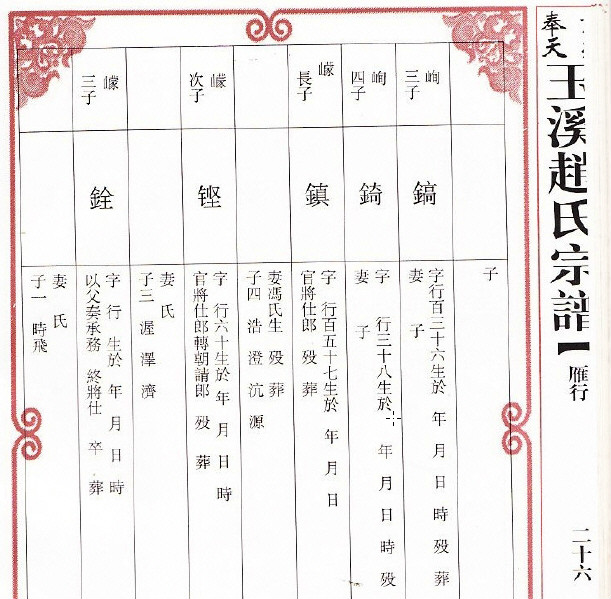 奉天
玉溪趙氏宗譜
雁行
二十六
子
峋三子
鎬
字行百三十六生於 年 月 日 時 殁 葬
妻 子
峋四子
錡
字 行三十八生於 年 月 日 時 殁
妻 子
㠓長子
鎮
字 行百五十七生於 年 月 日
官將仕郎 殁 葬
妻馮氏生 殁 葬
子四 浩 澄 沆 源
㠓次子
铿
字 行六十生於 年 月 日 時
官將仕郎轉朝請郎 殁 葬
妻 氏
子三 渥 澤 濟
㠓三子
銓
字 行 生於 年 月 日 時
以父奏承務 終將仕 卒 葬
妻 氏
子一 時飛